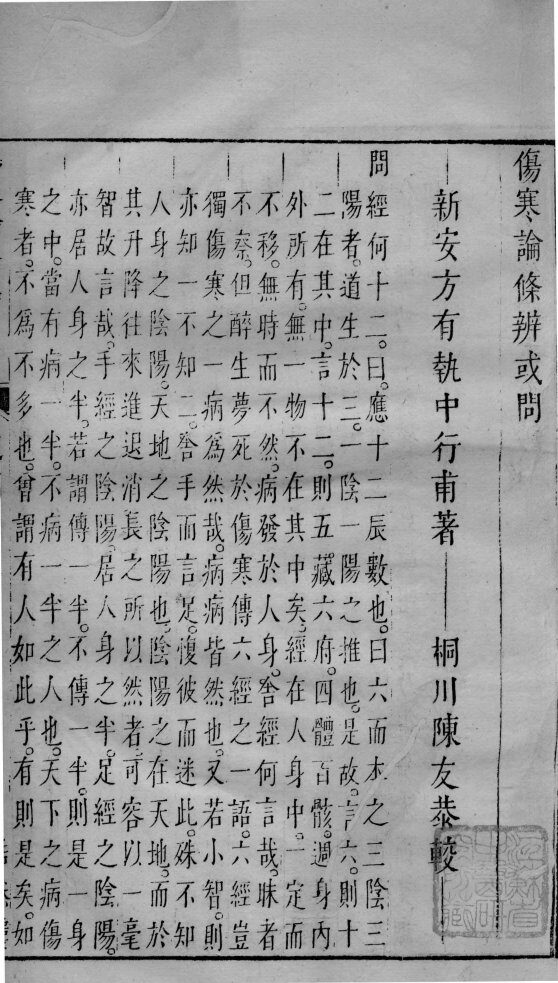 傷寒論條辨或問
新安方有執中行甫著 桐川陳友恭較
問經何十二。曰。應十二辰數也。曰六而本之三陰三
陽者。道生於三。一陰一陽之推也。是故言六。則十
二在其中。言十二。則五藏六府。四體百骸。週身內
外所有。無一物不在其中矣。經在人身中。一定而
不移。無時而不然。病發於人身。舍經何言哉。昧者
不察。但醉生夢死於傷寒傳六經之一語。六經豈
獨傷寒之一病為然哉。病病皆然也。又若小智。則
亦知一不知二。舍手而言足。愎彼而迷此。殊不知
人身之陰陽。天地之陰陽也。陰陽之在天地。而於
其升降往來進退消長之所以然者。可容以一毫
智故言哉。手經之陰陽。居人身之半。足經之陰陽。
亦居人身之半。若謂傳一半。不傳一半。則是一身
之中。當有病一半。不病一半之人也。天下之病傷
寒者。不為不多也。曾謂有人如此乎。有則是矣。如